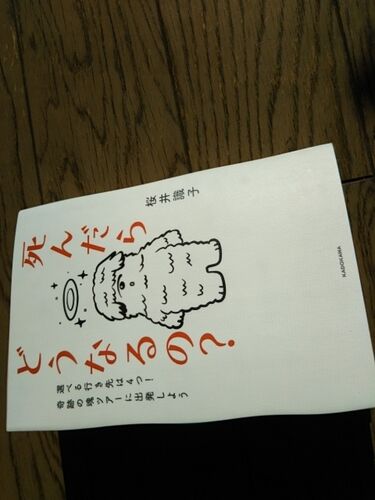 死んだら
どうなるの?
桜井識子
選べる行き先は4つ!
奇跡の魂ツアーに出発しよう
KADOKAWA